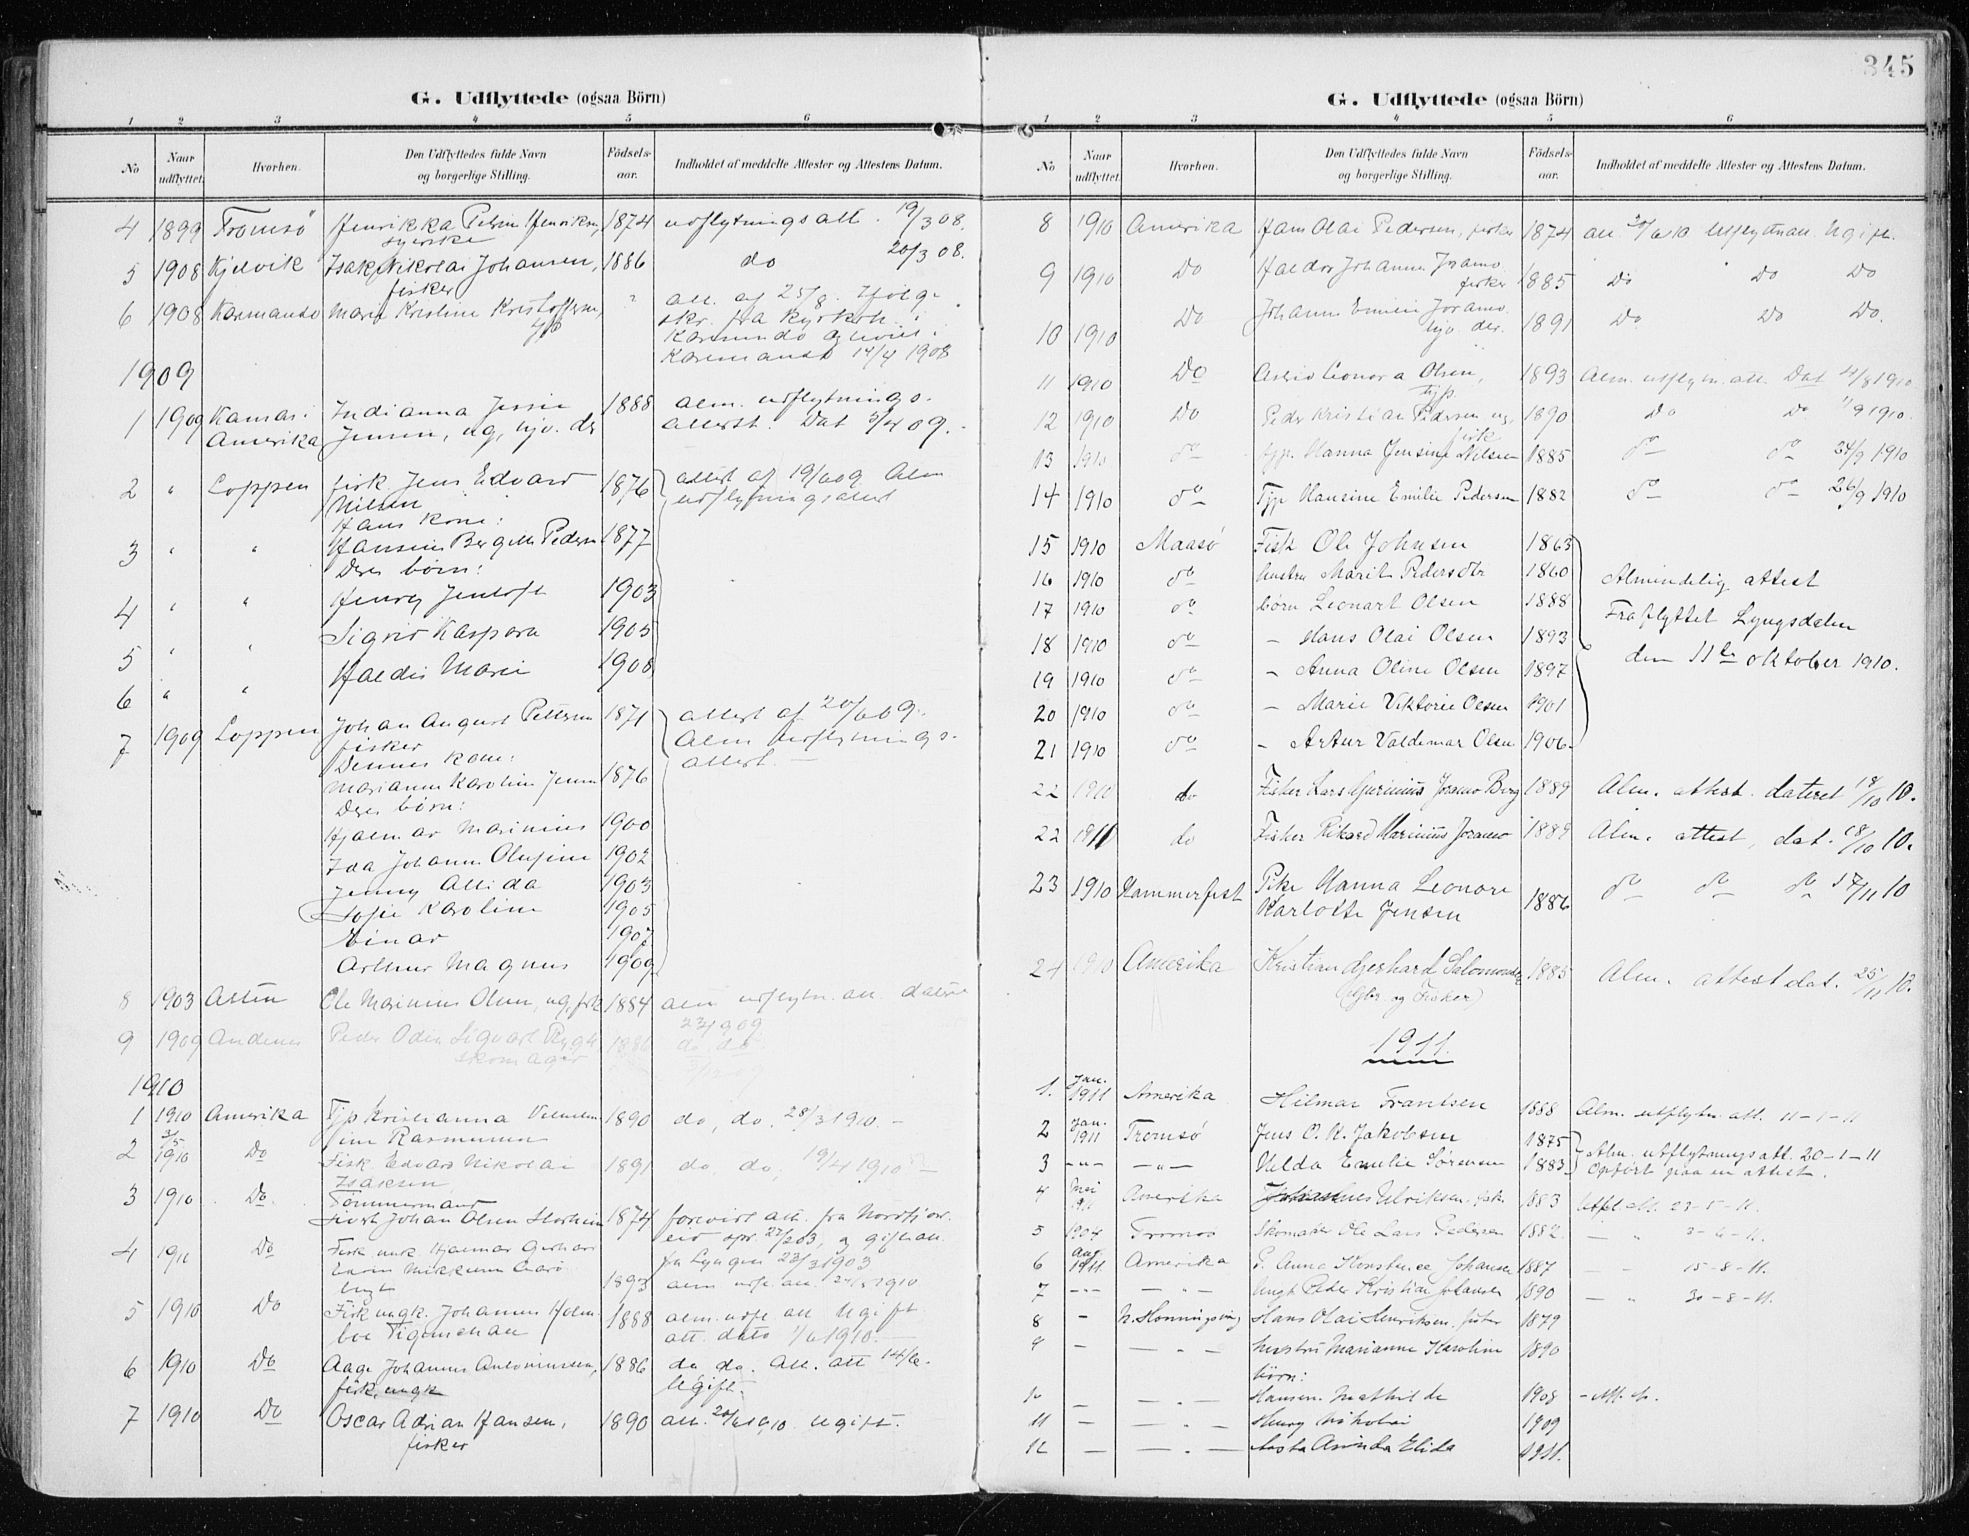 345
G. Udflyttede (ogsaa Börn)
1 2 3 4 5 6
No Naar udflyttet. Hvorhen. Den Udflyttedes fulde Navn og borgerlige Stilling. Födsels-aar. Indholdet af meddelte Attester og Attestens Datum.
4 1899 Tromsö Henrikka Petrin Henriksen, 1874 udflytningsatt. 19/3 08.
syerske
5 1908 Kjelvik Isak Nikolai Johansen, 1886 do 20/3 08.
fisker
6 1908 Karmando Maria Kristine Kristoffersen, " att. af 25/8. Ifølge
skr. fra
14/4 1908
1909
1 1909 Indianna Jessie 1888 alm. udflytnings-
Amerika Jensen, ug, hjv. der attest. Dat 3/4 09.
2 " Loppen fisk Jens Edvard 1876 attest af 19/6 09 Alm
Nilsen udflytningsattest
Hans kone:
3 " " Hansine Bergitte Pedersen 1877
Deres børn:
4 " " Henry Jentoft 1903
Sigrid Kaspara 1905
5 " "
Haldis Marie 1908
6 " "
7 1909 Loppen Johan August Pettersen 1871 attest af 20/6 09.
fisker Alm udflytnings-
Dennes kone: attest. —
Marianne Karoline Jensen 1876
Deres børn:
Hjalmar Marinius 1900
Ida Johanne Olufine 1902
Jenny Alida 1903
Sofie Karoline 1905
Einar 1907
Arthur Magnus 1909
8 1903 Alten Ole Marinius Olsen, ug, fisk 1884 alm udflytn. att. dateret
9 1909 Andenes Peder Odin Sigvart do do.
skomager
1910
1 1910 Amerika Tjp Kristianna 1890 do, do, 28/3 1910. -
Rasmussen
2 1910 Do Fisk Edvard Nikolai 1891 do, do, 19/4 1910 -
Isaksen
3 1910 Do. Tømmermand
Sivert Johan Olsen 1874 forevist att. fra
4 1911 Do Fisk. ungk. Hjalmar Gerhard
1893
5 1910 Do Fisk ungk. Johannes 1888 alm. udfl. att Ugift
att. dato 1/6 1910. —
6 1910 Do Aage Johannes Antoniussen, 1886 do do. att. att 14/6.
fisk, ungk Ugift.
7 1910 Do Oscar Adrian Hansen, 1890 att. 20/6 1910. Ugift.
fisker
G. Udflyttede (ogsaa Börn)
1 2 3 4 5 6
No Naar udflyttet. Hvorhen. Den Udflyttedes fulde Navn og borgerlige Stilling. Födsels-aar. Indholdet af meddelte Attester og Attestens Datum.
8 1910 Amerika Hans Olai Pedersen, fisker 1874 att. 20/6 10 Utflyttn att. Ugift.
9 1910 Do Haldor Johannes Joramo 1885 Do Do Do
fisker
10 1910 Do Johanne Emilie Joramo 1891 Do Do Do.
hjv. der.
11 1910 Do Astrid Leonora Olsen, 1893 Alm. utflytn. att. Dat 4/8 1910
tjp.
12 1910 Do Peder Kristian Pedersen ug. 1890 Do Do 1/9 1910.
fisk
13 1910 do tjp. Hanna Jensine Nilsen 1885 do do 24/9 1910
14 1910 do Tjp Hansine Emilie Pedersen 1882 do do 26/9 1910
15 1910 Maasö Fisk Ole Johnsen 1863
16 1910 do hustru Marit Pedersdtr 1860 Almindelig attest
17 1910 do børn Leonart Olsen 1888 Fraflyttet Lyngsdalen
18 1910 do - Hans Olai Olsen 1893 den 11te oktober 1910.
19 1910 do - Anna Oline Olsen 1897
20 1910 do - Marie Viktorie Olsen 1901
21 1910 do - Artur Valdemar Olsen 1906
22 1910 do Fisker Lars Joramo Berg 1889 Alm. attest. dateret 18/10 10.
22 1911 do Fisker Rikard Marinius Joramo 1889 Alm. attest, dat. 18/10 10.
23 1910 Hammerfest Pike Hanna Leonore 1886 do do do 17/11 10
Karlotte Jensen
24 1910 Amerika Kristian Gjerhard Salomonsen 1885 Alm. attest dat. 25/11 10.
(Gbr og Fisker)
1911
1. Jan. 1911 Amerika Hilmar Frantsen 1888 Alm. utflytn. att. 11-1-11
2 Jan. 1911 Tromsö Jens O. K. Jakobsen 1875 Alm. utflytningsatt. 20-1-11
3 -"- -"- Helda Emilie Sørensen 1883 Opført paa en attest.
4 Mai 1911 Amerika Ulriksen, fisk. 1883 Utfl. att. 23-5-11.
5 1904 Tromsö Skomaker Ole Lars Pedersen 1882 — " 3-6-11.
6 Aug 1911. Amerika P. Anna Konstance Johansen 1887 — - 15-8-11.
7 -"- -"- Ungk Peder Kristian Johansen 1890 — " 30-8-11.
8 - N. Honningsvaag Hans Olai Henriksen, fisker 1879
9 - — " - Hustru Marianne Karoline 1890
børn:
10 — — " — Hansen. Mathilde 1908
11 — — " — Henry Nikolai 1909
12 — — " — Aasta Arinda Elida 1911.